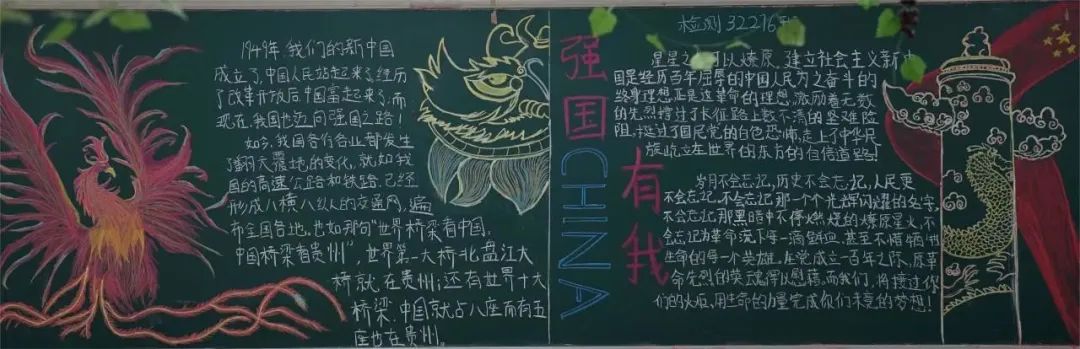 1949年,我们的新中国
成立了,中国人民站起来了,经历
了改革开放后中国富起来了,而
现在,我国也迈向强国之路!
如今,我国各行各业都发生
了翻天覆地的变化,就如我
国的高速公路和铁路,已经
形成八横八纵的交通网,遍
布全国各地,也如那句“世界桥梁看中国,
中国桥梁看贵州”,世界第一大桥北盘江大
桥就在贵州;还有世界十大
桥梁,中国就占八座而有五
座也在贵州。
强国CHINA
有我
检测32276班
星星之 可以燎原,建立社会主义新中
国是经历百年屈辱的中国人民为之奋斗的
终身理想,正是这革命的理想,激励着无数
的先烈挎过了长征路上数不清的艰难险
阻,挺过了国民党的白色恐怖,走上了中华民
族屹立在世界的东方的自信道路!
岁月不会忘记,历史不会忘记,人民更
不会忘记,不会忘记那一个个光辉闪耀的名字,
不会忘记那黑暗中不停燃烧的燎原星火,不
会忘记为革命流下每一滴鲜血,甚至不惜牺牲
生命的每一个英雄。在党成立一百年之际,愿革
命先烈的英魂得以慰藉,而我们,将接过你
们的火炬,用生命的力量完成你们未竟的梦想!